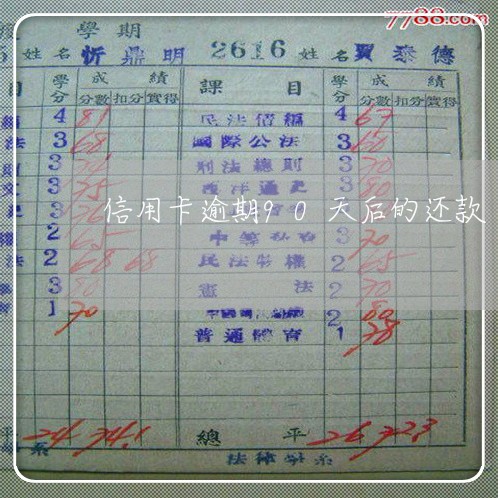 7788.com
學期
姓名 忻鼎明 2616 姓名 賈泰德
目 學分 成績 分數 扣分 實得 課目 學分 成績 分數 扣分 實得
4 81 民法債編 4 67
法 3 68 國際公法 3 60
3 刑法總則 3 70
文 3 75 西洋通史 3 80
信用卡逾期90天后的还款
2 65 3 70
法 2 68 68 民法物權 2 65
3 80 憲法 2 70
育 1 70 2 80
普通體育 1 78
平 24 74.1 總平 26 72.3
系 法律學系